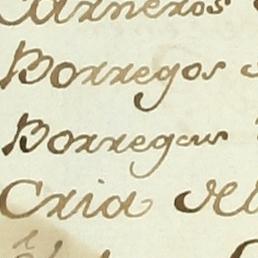 Carneros
Borregos
Borregas
Cria de